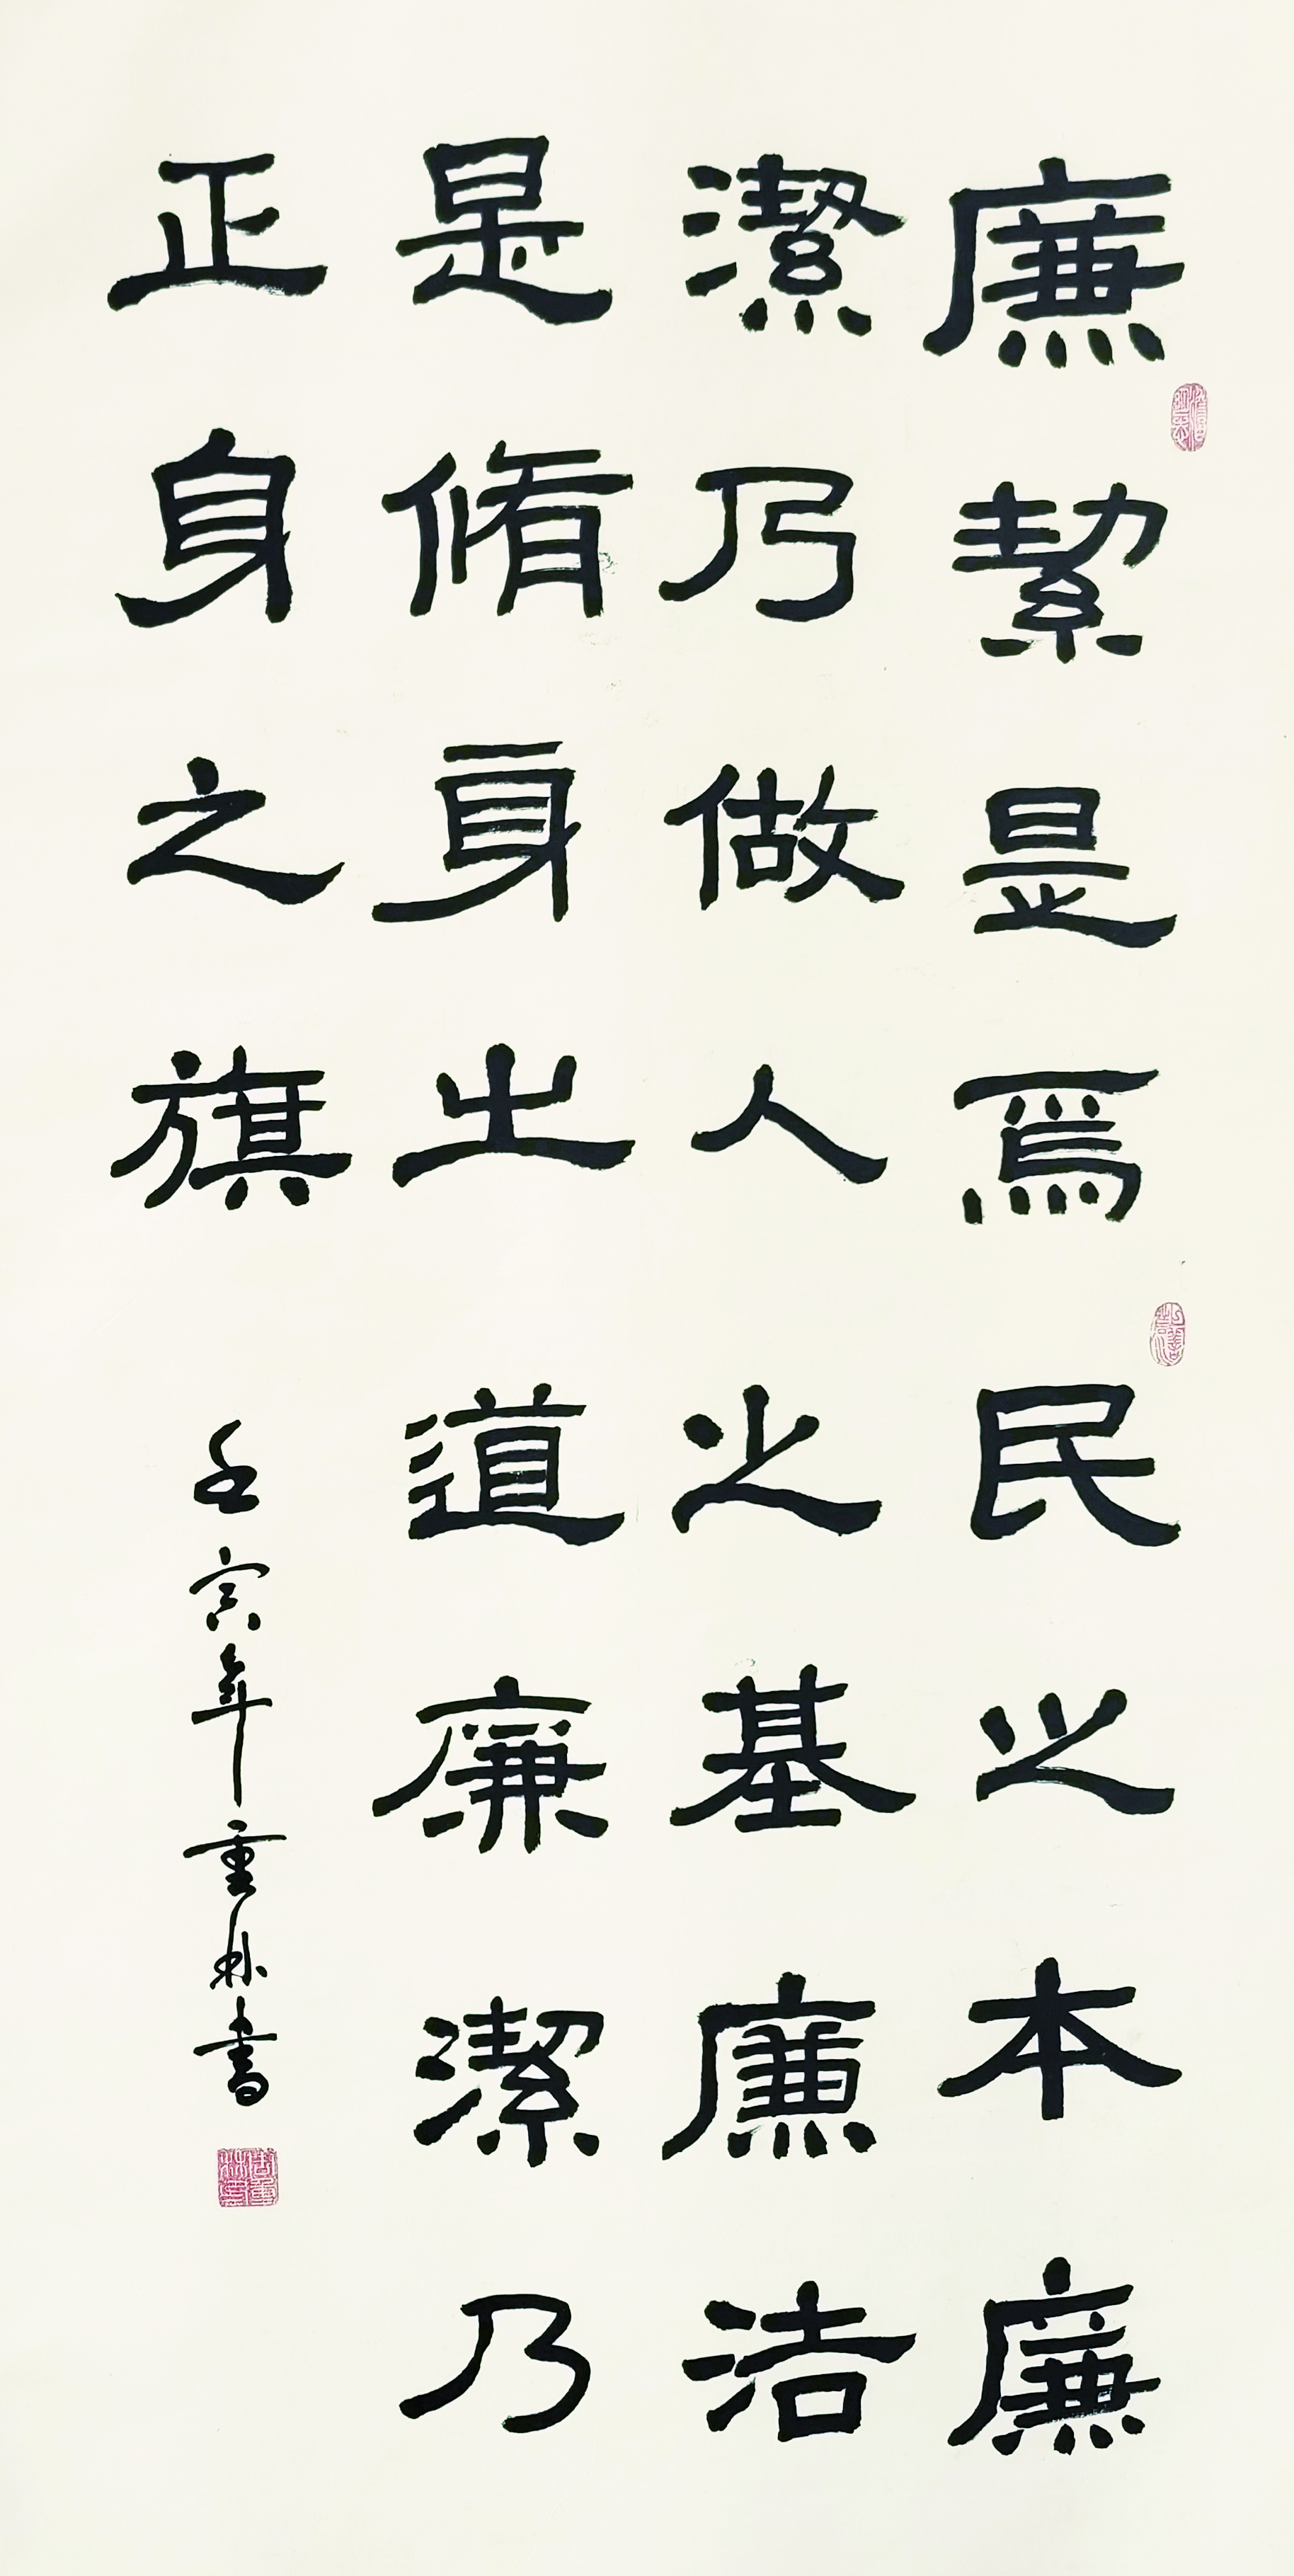 廉絜是爲民之本廉
潔乃做人之基廉洁
是脩身之道廉潔乃
正身之旗
壬寅年重林書